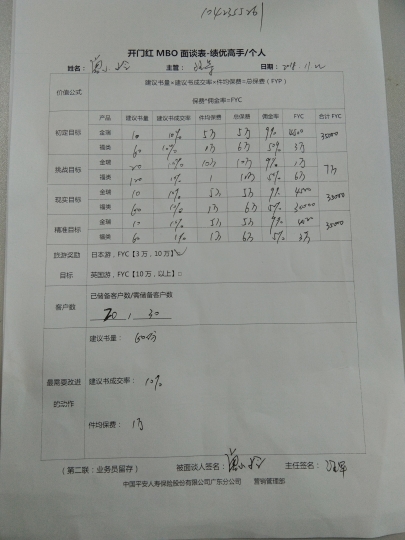 开门红 MBO 面谈表-绩优高手/个人
姓名： 主管： 日期：
价值公式
建议书量×建议书成交率×件均保费=总保费（FYP）
保费*佣金率=FYC
产品 建议书量 建议书成交率 件均保费 总保费 佣金率 FYC 合计 FYC
初定目标 金瑞 10 10% 5万 5万 9% 4500 35000
福类 60 10% 1万 6万 50% 3万
挑战目标 金瑞 20 10% 10万 10万 9% 1万 7万
福类 120 10% 1 10万 5% 6万
现实目标 金瑞 10 10% 5万 5万 9% 4500
福类 60 10% 1万 6万 5% 30000
精准目标 金瑞 10 10% 5万 5万 9% 35000
福类 60 10% 1万 6万 5% 3万
旅游奖励目标
日本游，FYC【3 万，10 万】
英国游，FYC【10 万，以上】□
客户数
已储备客户数/需储备客户数
20 / 30
最需要改进的动作
建议书量： 60份
建议书成交率： 10%
件均保费： 1万
（第二联：业务员留存） 被面谈人签名： 主任签名：
中国平安人寿保险股份有限公司广东分公司 营销管理部